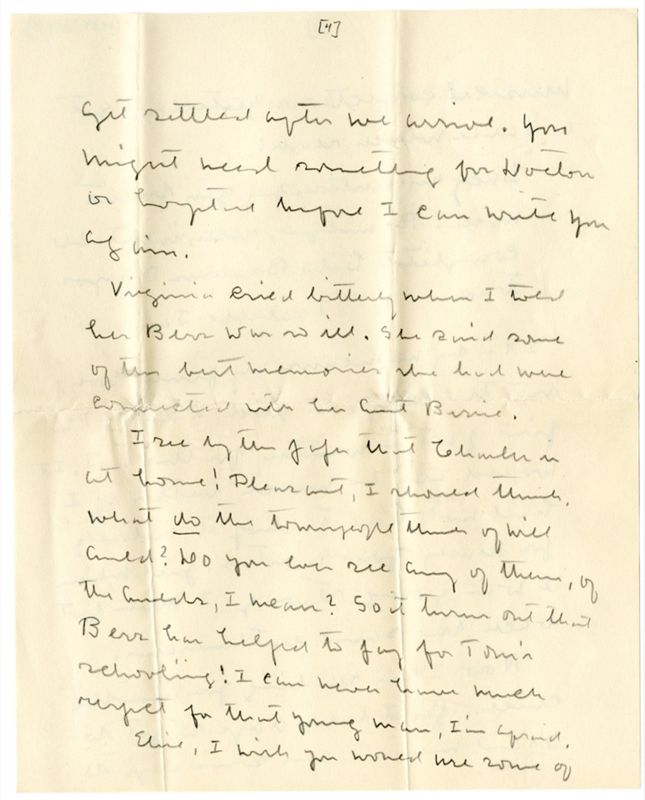 [4]
get settled after we arrive. You
might need something for Doctor
or hospital before I can write you
again.
Virginia cried bitterly when I told
her Bess was so ill. She said some
of the best memories she had were
connected with her Aunt Bessie.
I see by the paper that Charles is
at home! Pleasant, I should think.
What do the townspeople think of Will
Auld? Do you ever see any of them, of
the Aulds, I mean? So it turns out that
Bess has helped to pay for Tom's
schooling! I can never have much
respect for that young man, I'm afraid.
Elsie, I wish you would use some of